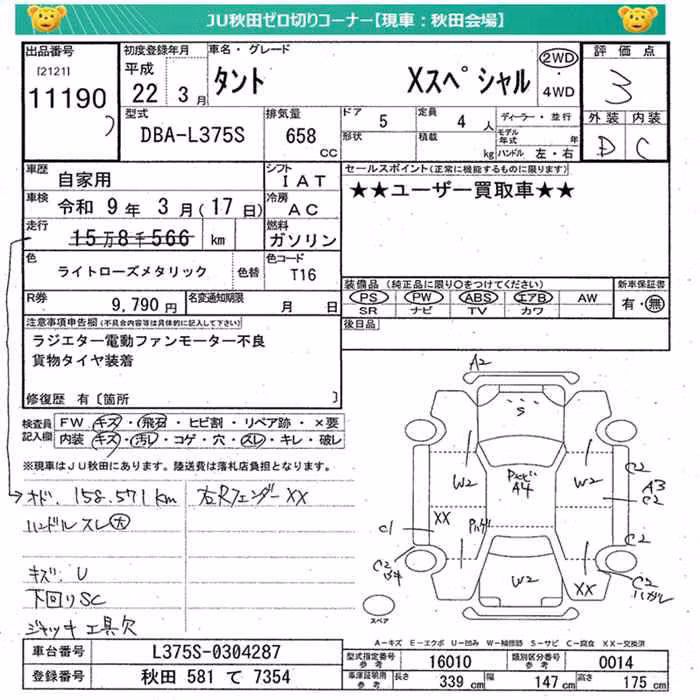 JU秋田ゼロ切りコーナー【現車：秋田会場】
出品番号
[2121]
11190
初度登録年月
平成
22 3月
車名・グレード
タント Xスペシャル
2WD
・
4WD
評価点
3
型式
DBA-L375S
排気量
658
CC
ドア 5
形状
定員 4 人
積載 kg
ディーラー・並行
モデル年式 年
ハンドル 左・右
外装 内装
D C
車歴
自家用
シフト
IAT
車検 令和 9年 3月(17日)
冷房
AC
走行
15万8千566 km
燃料
ガソリン
色
ライトローズメタリック
色替
色コード
T16
R券
9,790 円
名変通知期限
月 日
セールスポイント(正常に機能するものに限ります)
★★ユーザー買取車★★
装備品(純正品に限り○をつけてください)
PS PW ABS エアB AW
SR ナビ TV カワ
新車保証書
有・無
後日品
注意事項申告欄(不具合内容等は具体的に記入して下さい)
ラジエター電動ファンモーター不良
貨物タイヤ装着
修復歴 有〔箇所 〕
検査員
記入欄
FW キズ・飛石・ヒビ割・リペア跡・×要
内装 キズ・汚レ・コゲ・穴・スレ・キレ・破レ
※現車はJU秋田にあります。陸送費は落札店負担となります。
オド. 158.571km
右Rフェンダー XX
ハンドル スレ大
キズ. U
下回りSC
ジャッキ 工具欠
A2
S
W2
A4
W2
C2
A3
C2
C1
XX
C2
C2
W2
XX
C2
スペア
A－キズ E－エクボ U－凹み W－補修跡 S－サビ C－腐食 XX－交換済
車台番号
L375S-0304287
登録番号
秋田 581 て 7354
型式指定番号
参考
16010
類別区分番号
参考
0014
車庫証明用
参考
長さ 339 cm
幅 147 cm
高さ 175 cm